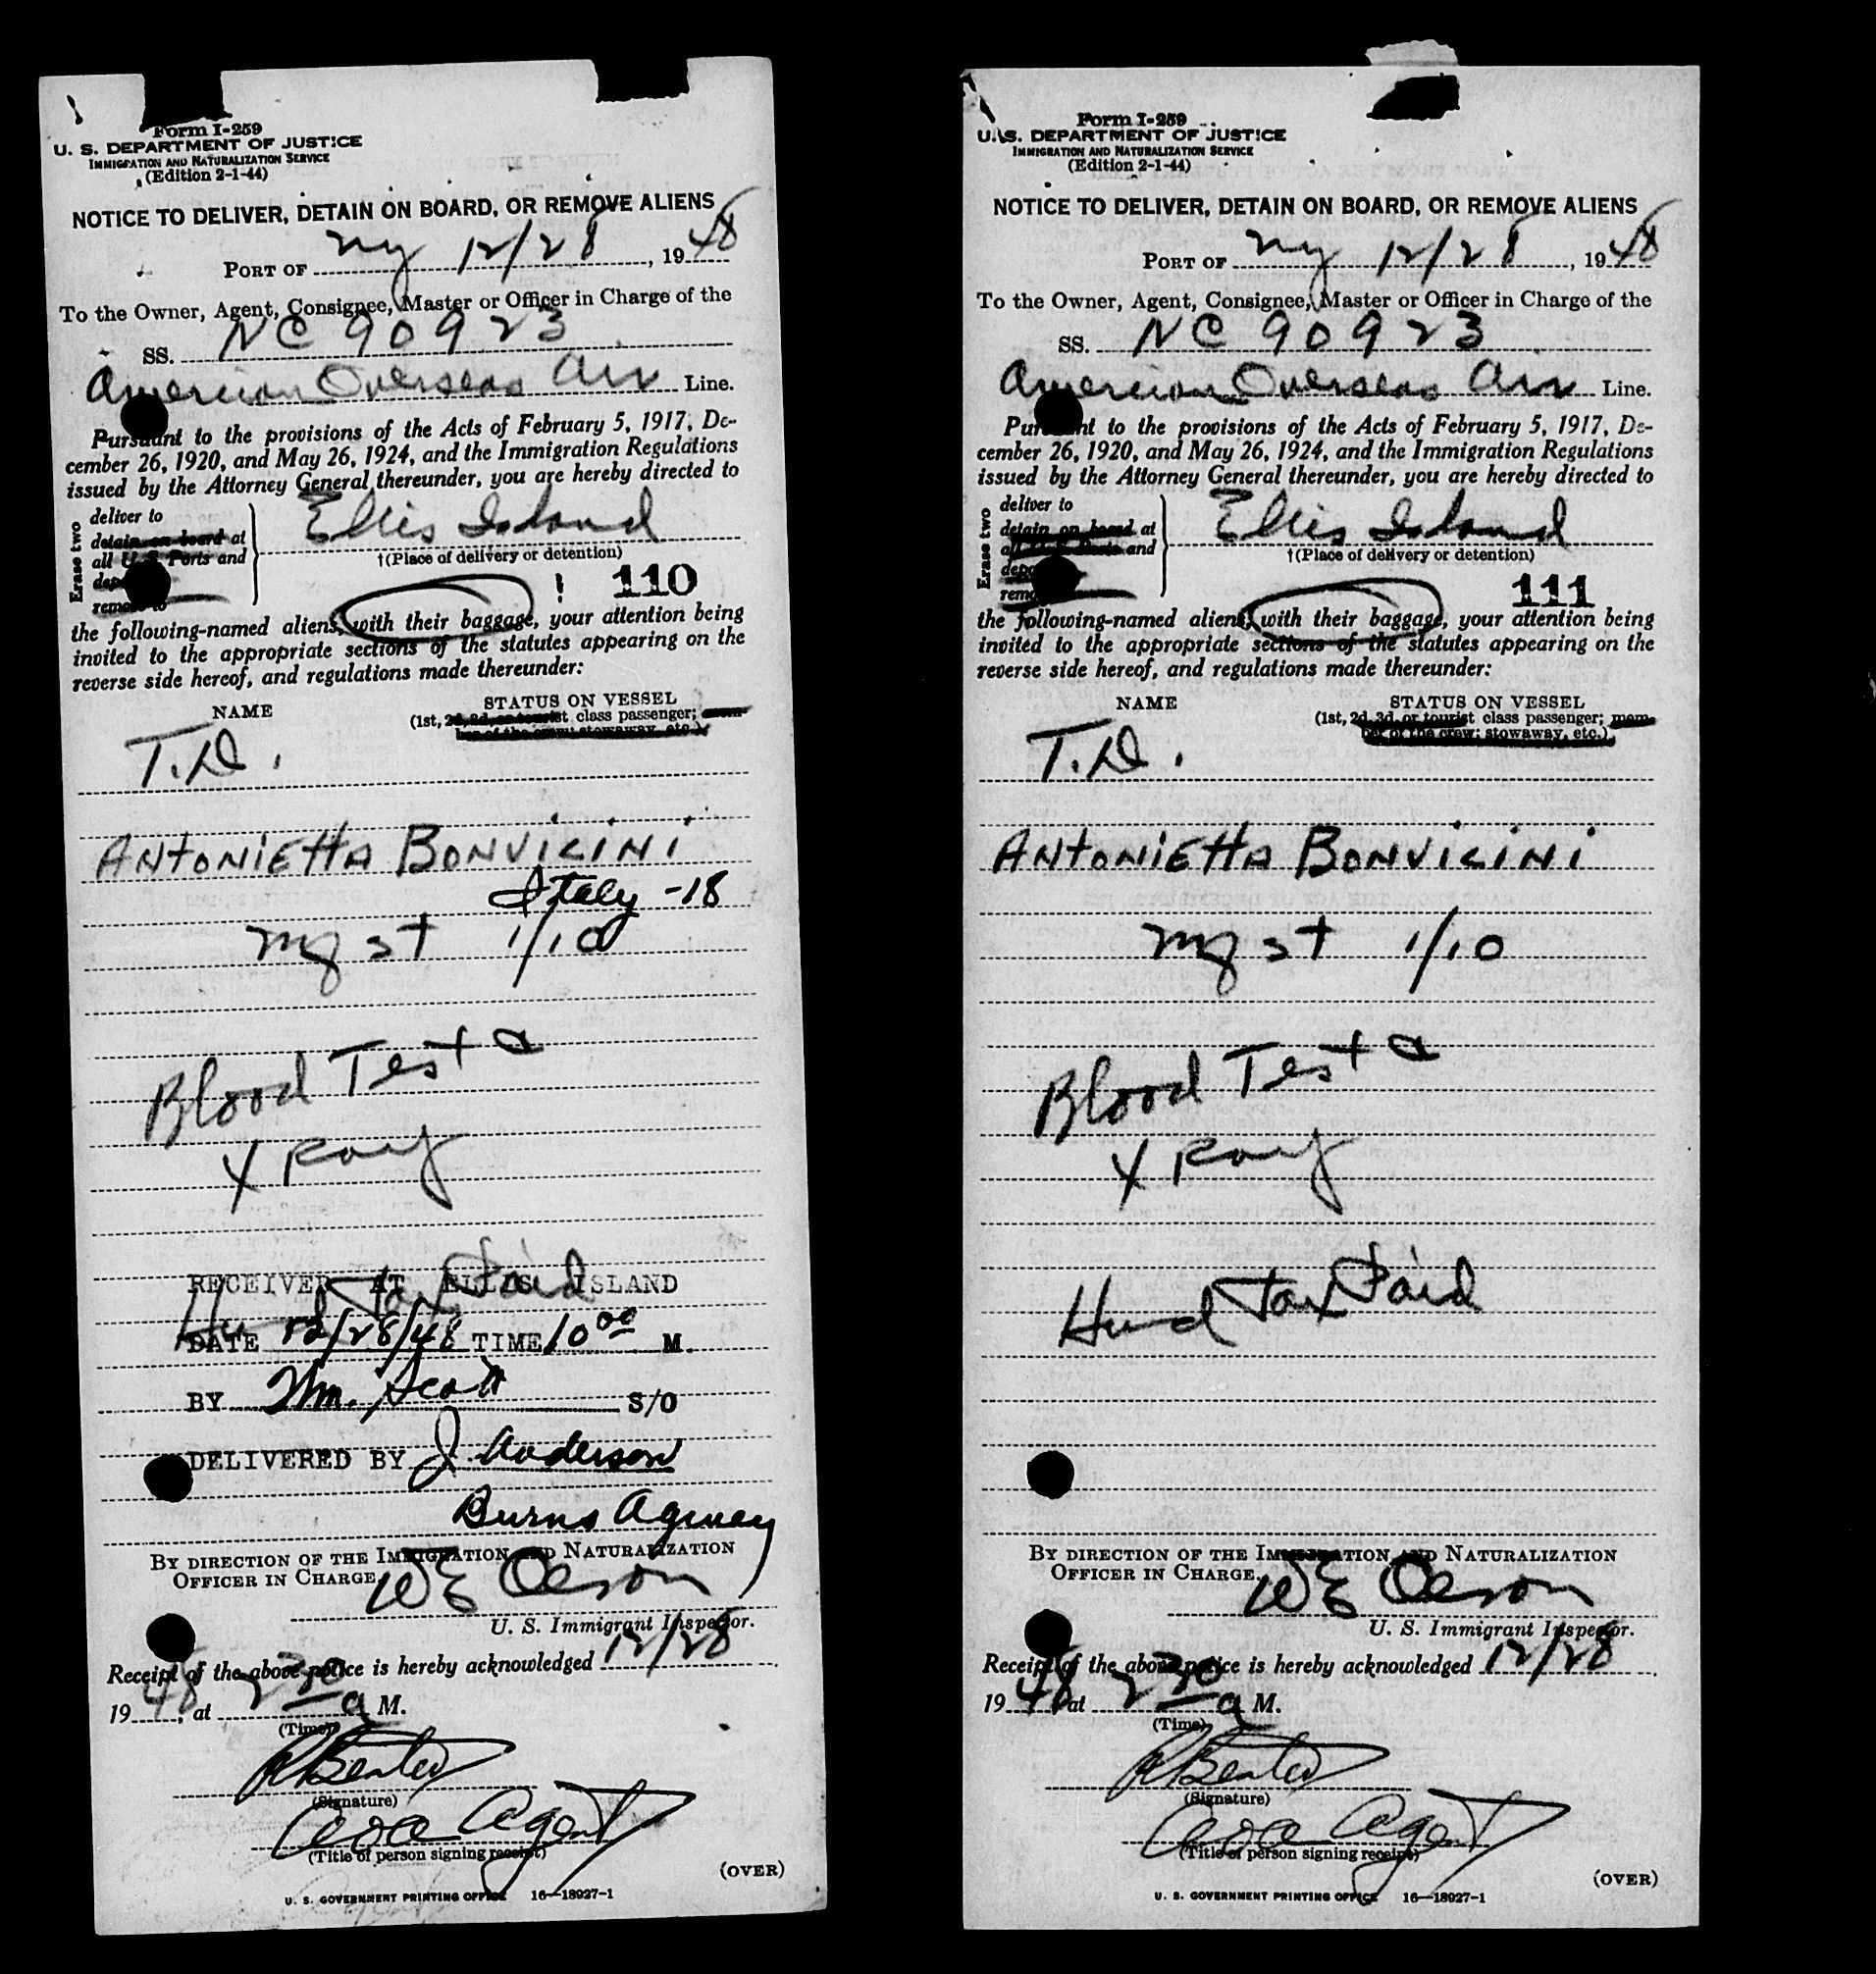 Form I-259
U. S. DEPARTMENT OF JUSTICE
IMMIGRATION AND NATURALIZATION SERVICE
(Edition 2-1-44)
NOTICE TO DELIVER, DETAIN ON BOARD, OR REMOVE ALIENS
PORT OF NY 12/28, 1948
To the Owner, Agent, Consignee, Master or Officer in Charge of the
SS. NC 90923
American Overseas Air Line.
Pursuant to the provisions of the Acts of February 5, 1917, De-
cember 26, 1920, and May 26, 1924, and the Immigration Regulations
issued by the Attorney General thereunder, you are hereby directed to
Erase two
deliver to
detain on board at
all U. S. Ports and
remove to
Ellis Island
†(Place of delivery or detention)
! 110
the following-named aliens, with their baggage, your attention being
invited to the appropriate sections of the statutes appearing on the
reverse side hereof, and regulations made thereunder:
NAME
STATUS ON VESSEL
(1st, 2d, 3d, or tourist class passenger; mem-
ber of the crew; stowaway, etc.)
T.D.
ANTONIETTA BONVICINI
Italy -18
1/10
Blood Test &
X Ray
Head Tax Paid
RECEIVED AT ELLIS ISLAND
DATE 12/28/48 TIME 10 00 M.
BY Wm. Scott S/O
DELIVERED BY J. Anderson
Burns Agency
BY DIRECTION OF THE IMMIGRATION AND NATURALIZATION
OFFICER IN CHARGE.
WE Olson
U. S. Immigrant Inspector.
Receipt of the above notice is hereby acknowledged 12/28
1948, at 2 30 a M.
(Time)
(Signature)
aoa Agent
(Title of person signing receipt)
(OVER)
U. S. GOVERNMENT PRINTING OFFICE 16—18927-1
Form I-259
U. S. DEPARTMENT OF JUSTICE
IMMIGRATION AND NATURALIZATION SERVICE
(Edition 2-1-44)
NOTICE TO DELIVER, DETAIN ON BOARD, OR REMOVE ALIENS
PORT OF NY 12/28, 1948
To the Owner, Agent, Consignee, Master or Officer in Charge of the
SS. NC 90923
American Overseas Air Line.
Pursuant to the provisions of the Acts of February 5, 1917, De-
cember 26, 1920, and May 26, 1924, and the Immigration Regulations
issued by the Attorney General thereunder, you are hereby directed to
Erase two
deliver to
detain on board at
all U. S. Ports and
Ellis Island
†(Place of delivery or detention)
111
the following-named aliens, with their baggage, your attention being
invited to the appropriate sections of the statutes appearing on the
reverse side hereof, and regulations made thereunder:
NAME
STATUS ON VESSEL
(1st, 2d, 3d, or tourist class passenger; mem-
ber of the crew; stowaway, etc.)
T.D.
ANTONIETTA BONVICINI
1/10
Blood Test &
X Ray
Head Tax Paid
BY DIRECTION OF THE IMMIGRATION AND NATURALIZATION
OFFICER IN CHARGE.
WE Olson
U. S. Immigrant Inspector.
Receipt of the above notice is hereby acknowledged 12/28
1948 at 2 30 a M.
(Time)
(Signature)
aoa Agent
(Title of person signing receipt)
(OVER)
U. S. GOVERNMENT PRINTING OFFICE 16—18927-1